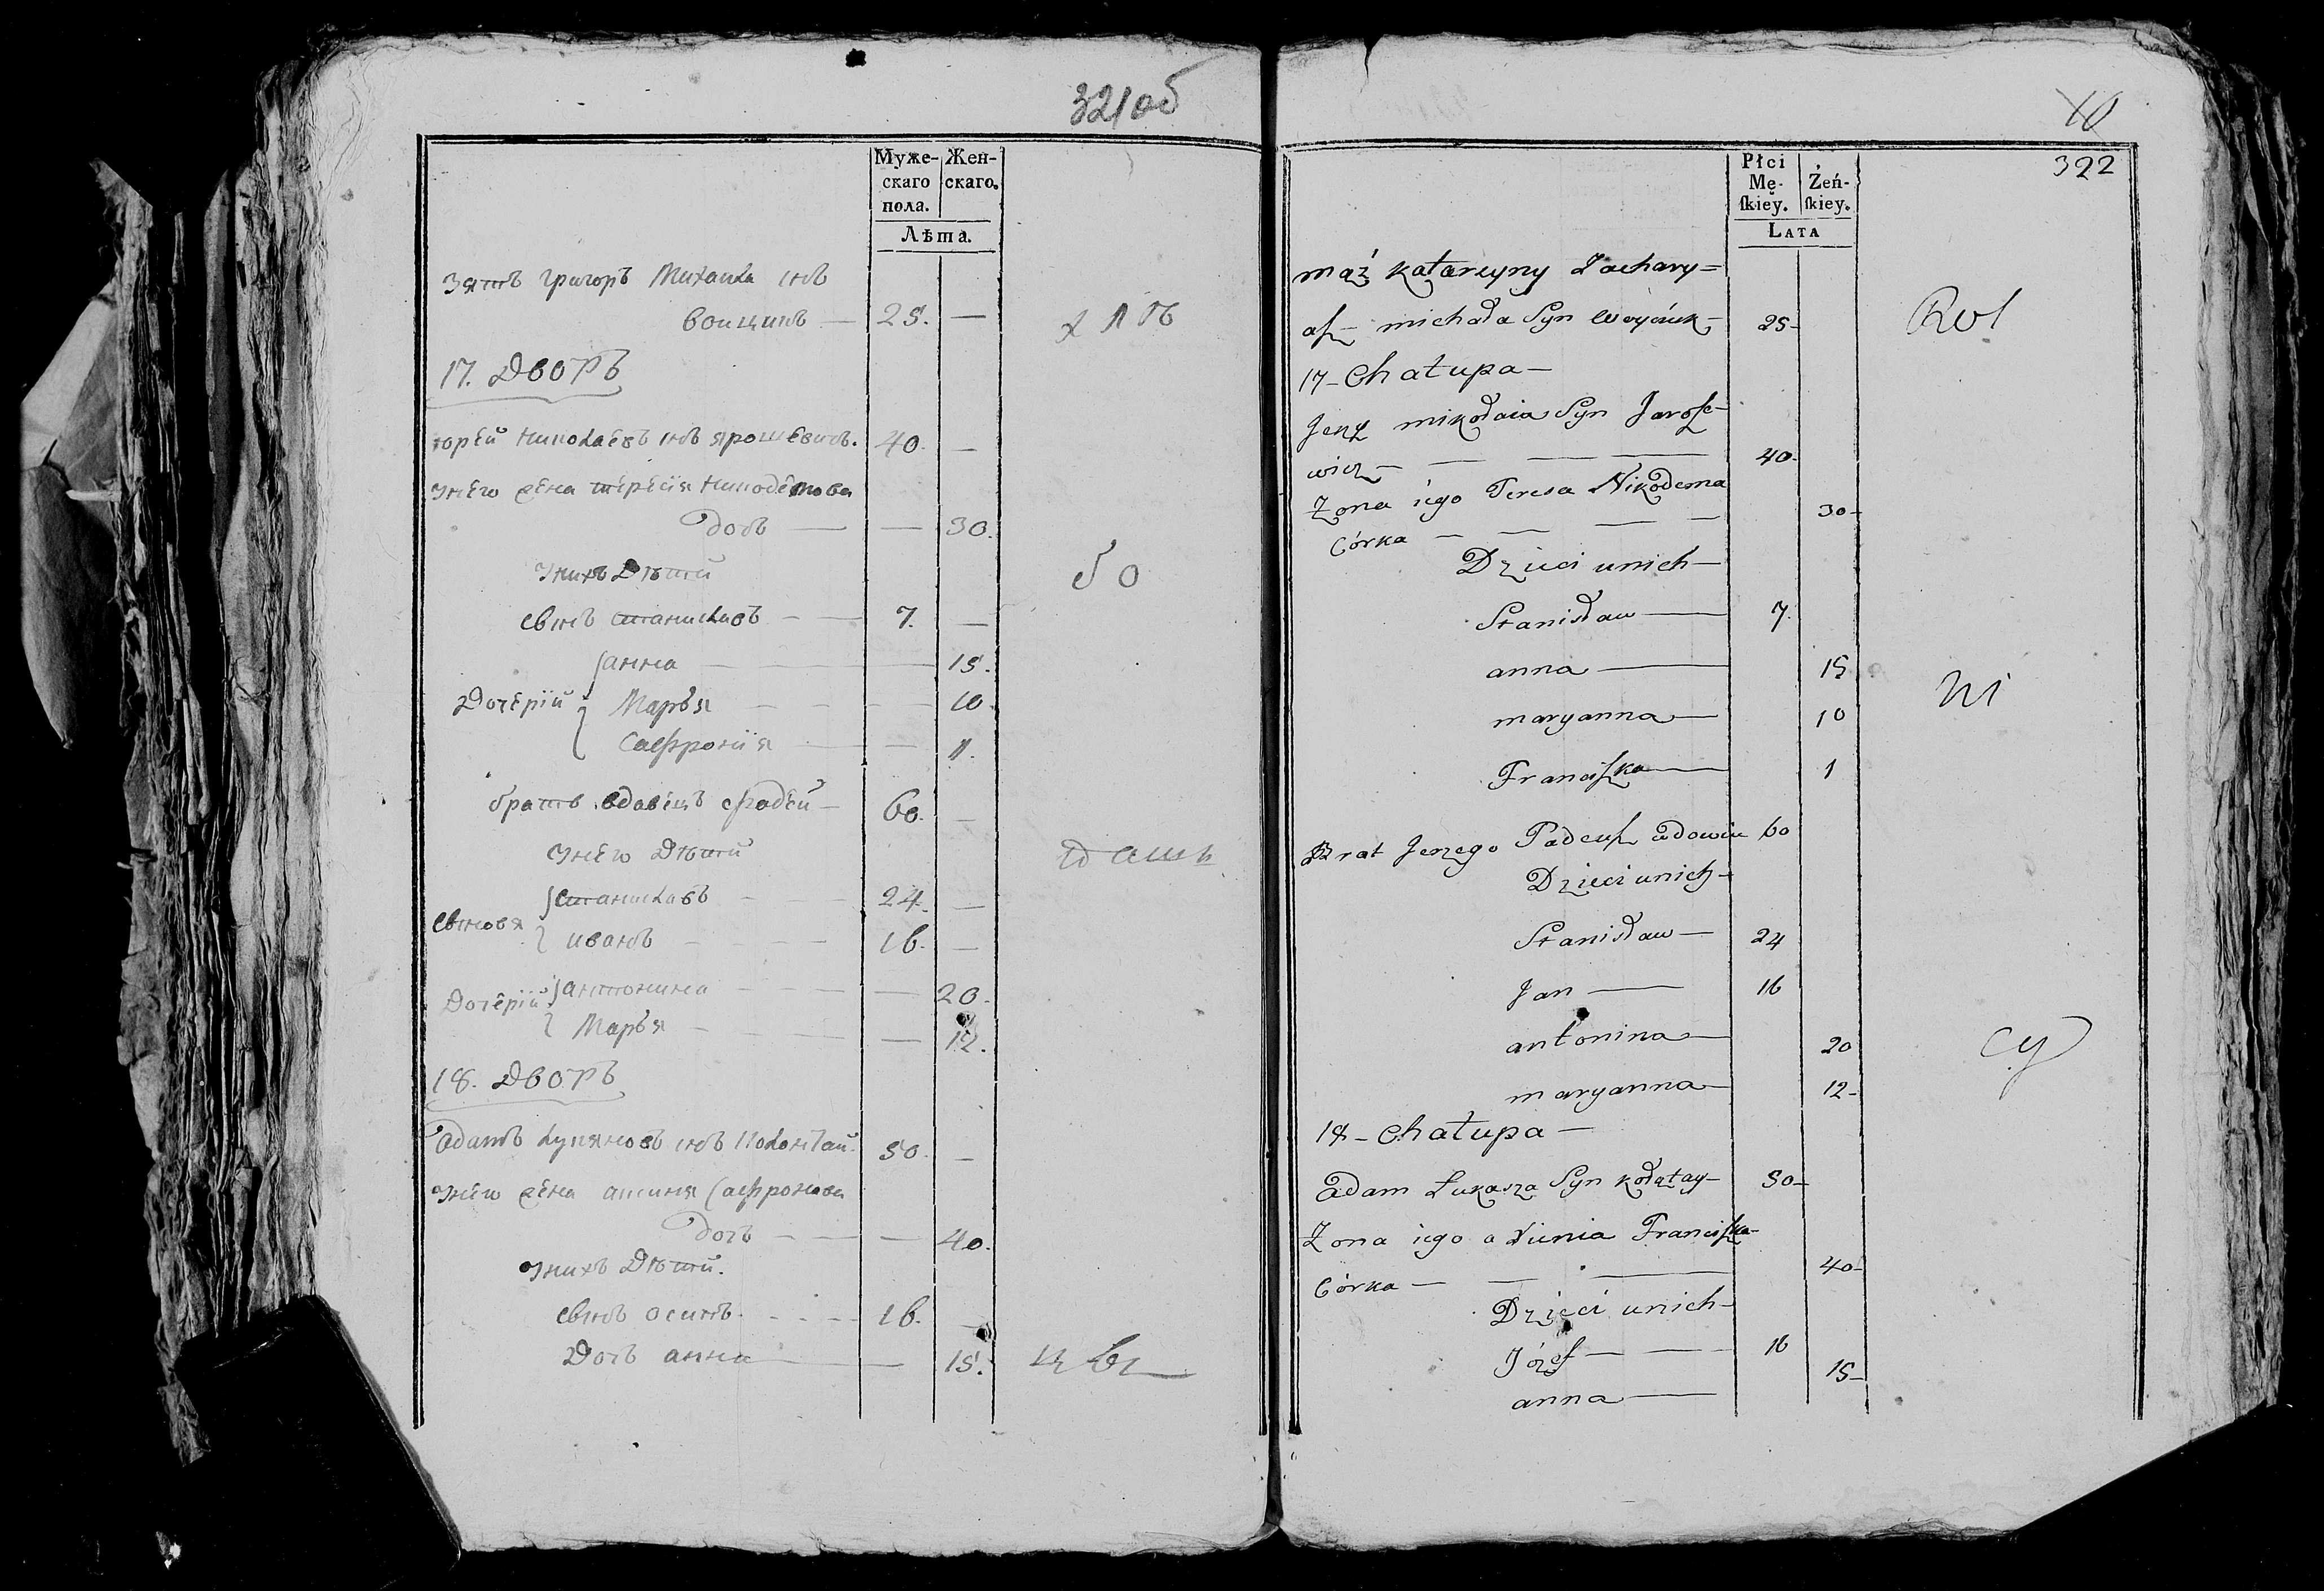 321об
Муже-
скаго
пола.
Жен-
скаго.
Лѣта.
Зять григоръ Михаила снъ
воицикъ — 25. —
хлѣ
17. Дворъ
юрей николаевъ снъ ярошевичъ. 40. —
Унего жена тересія никодемова
дочъ — — 30.
Унихъ Дѣти
бо
Сынъ станиславъ — — 7. —
анна — — — 15.
Дочерїи Марья — — — 10
Сафронія — — 1.
братъ вдавецъ фадей — 60. —
Унего Дѣти
пашъ
Сыновя станиславъ — — 24. —
иванъ — — 16. —
Дочерїи антонина — — — 20.
Марья — — — 12.
18. Дворъ
адамъ лукяновъ снъ Колонтай. 50. —
Унего жена Сафронова
дочъ — — 40.
Унихъ Дѣти.
Сынъ осипъ — — 16. —
Дочъ анна — — 15.
цвы
10
322
Płci
Mę-
ſkiey.
Żeń-
ſkiey.
Lata
mąż katarzyny Zachary-
aſz michała Syn 25-
Rol
17- Chałupa —
Jerzy mikołaia Syn Jaroſze-
wicz — — — — 40-
Żona iego Teresa Nikodema
Córka — — — — 30-
Dzieci unich —
Stanisław — 7.
anna — 15
ni
maryanna — 10
Franciſzka — 1
Brat Jerzego Tadeuſz wdowiec 60
Dzieci unich -
Stanisław — 24
Jan — 16
antonina — 20
cy
maryanna — 12-
18- Chałupa —
Adam Łukasza Syn kołątay — 50-
Żona iego Franciſzka-
Córka — — — 40-
Dzieci unich -
Józef — — 16
anna — 15-